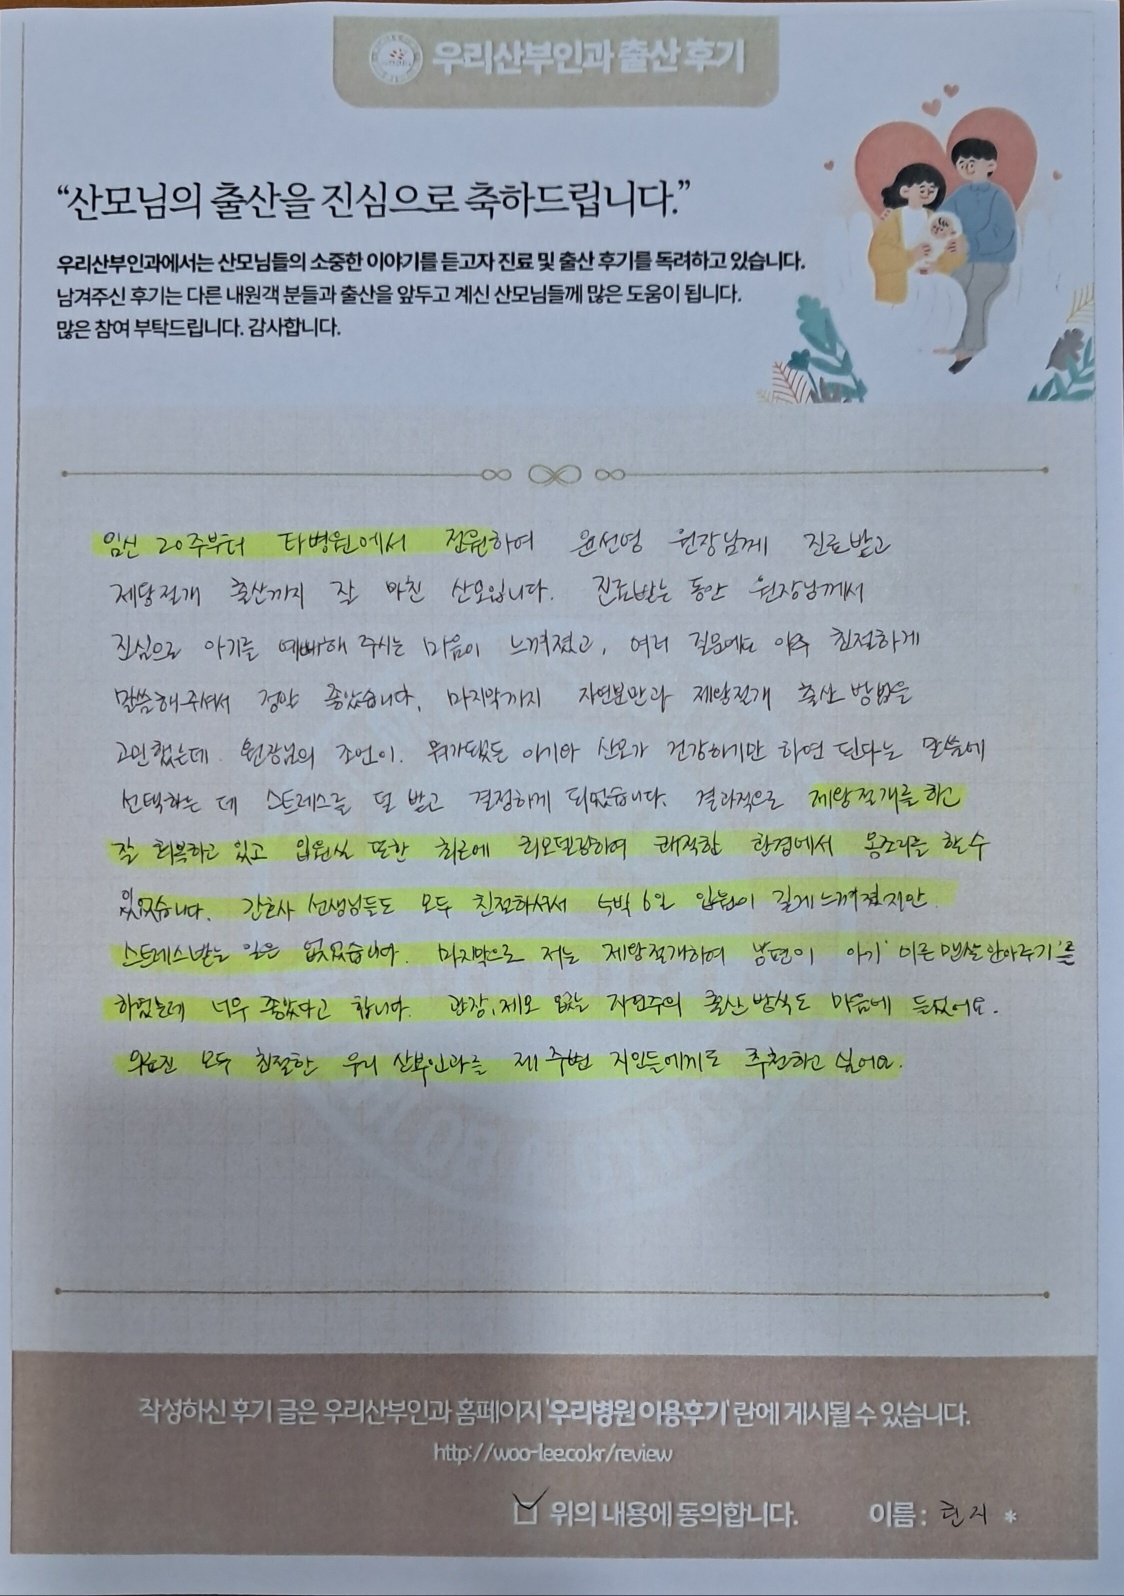 우리산부인과 출산 후기
“산모님의 출산을 진심으로 축하드립니다.”
우리산부인과에서는 산모님들의 소중한 이야기를 듣고자 진료 및 출산 후기를 독려하고 있습니다.
남겨주신 후기는 다른 내원객 분들과 출산을 앞두고 계신 산모님들께 많은 도움이 됩니다.
많은 참여 부탁드립니다. 감사합니다.
임신 20주부터 타병원에서 전원하여 윤선영 원장님께 진료받고
제왕절개 출산까지 잘 마친 산모입니다. 진료받는 동안 원장님께서
진심으로 아기를 예뻐해 주시는 마음이 느껴졌고, 여러 질문에도 아주 친절하게
말씀해주셔서 정말 좋았습니다. 마지막까지 자연분만과 제왕절개 출산 방법을
고민했는데 원장님의 조언이. 뭐가됐든 아기와 산모가 건강하기만 하면 된다는 말씀에
선택하는 데 스트레스를 덜 받고 결정하게 되었습니다. 결과적으로 제왕절개를 하고
잘 회복하고 있고 입원실 또한 최근에 리모델링하여 쾌적한 환경에서 몸조리를 할 수
있었습니다. 간호사 선생님들도 모두 친절하셔서 5박 6일 입원이 길게 느껴졌지만
스트레스받는 일은 없었습니다. 마지막으로 저는 제왕절개하여 남편이 아기 '이른 맨살 안아주기'를
하였는데 너무 좋았다고 합니다. 관장, 제모 없는 자연주의 출산 방식도 마음에 들었어요.
의료진 모두 친절한 우리 산부인과를 제 주변 지인들에게도 추천하고 싶어요.
작성하신 후기 글은 우리산부인과 홈페이지 '우리병원 이용후기' 란에 게시될 수 있습니다.
http://woo-lee.co.kr/review
위의 내용에 동의합니다. 이름 : 지 *